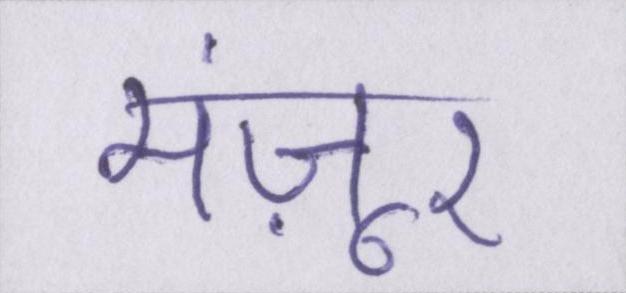 मंज़ूर